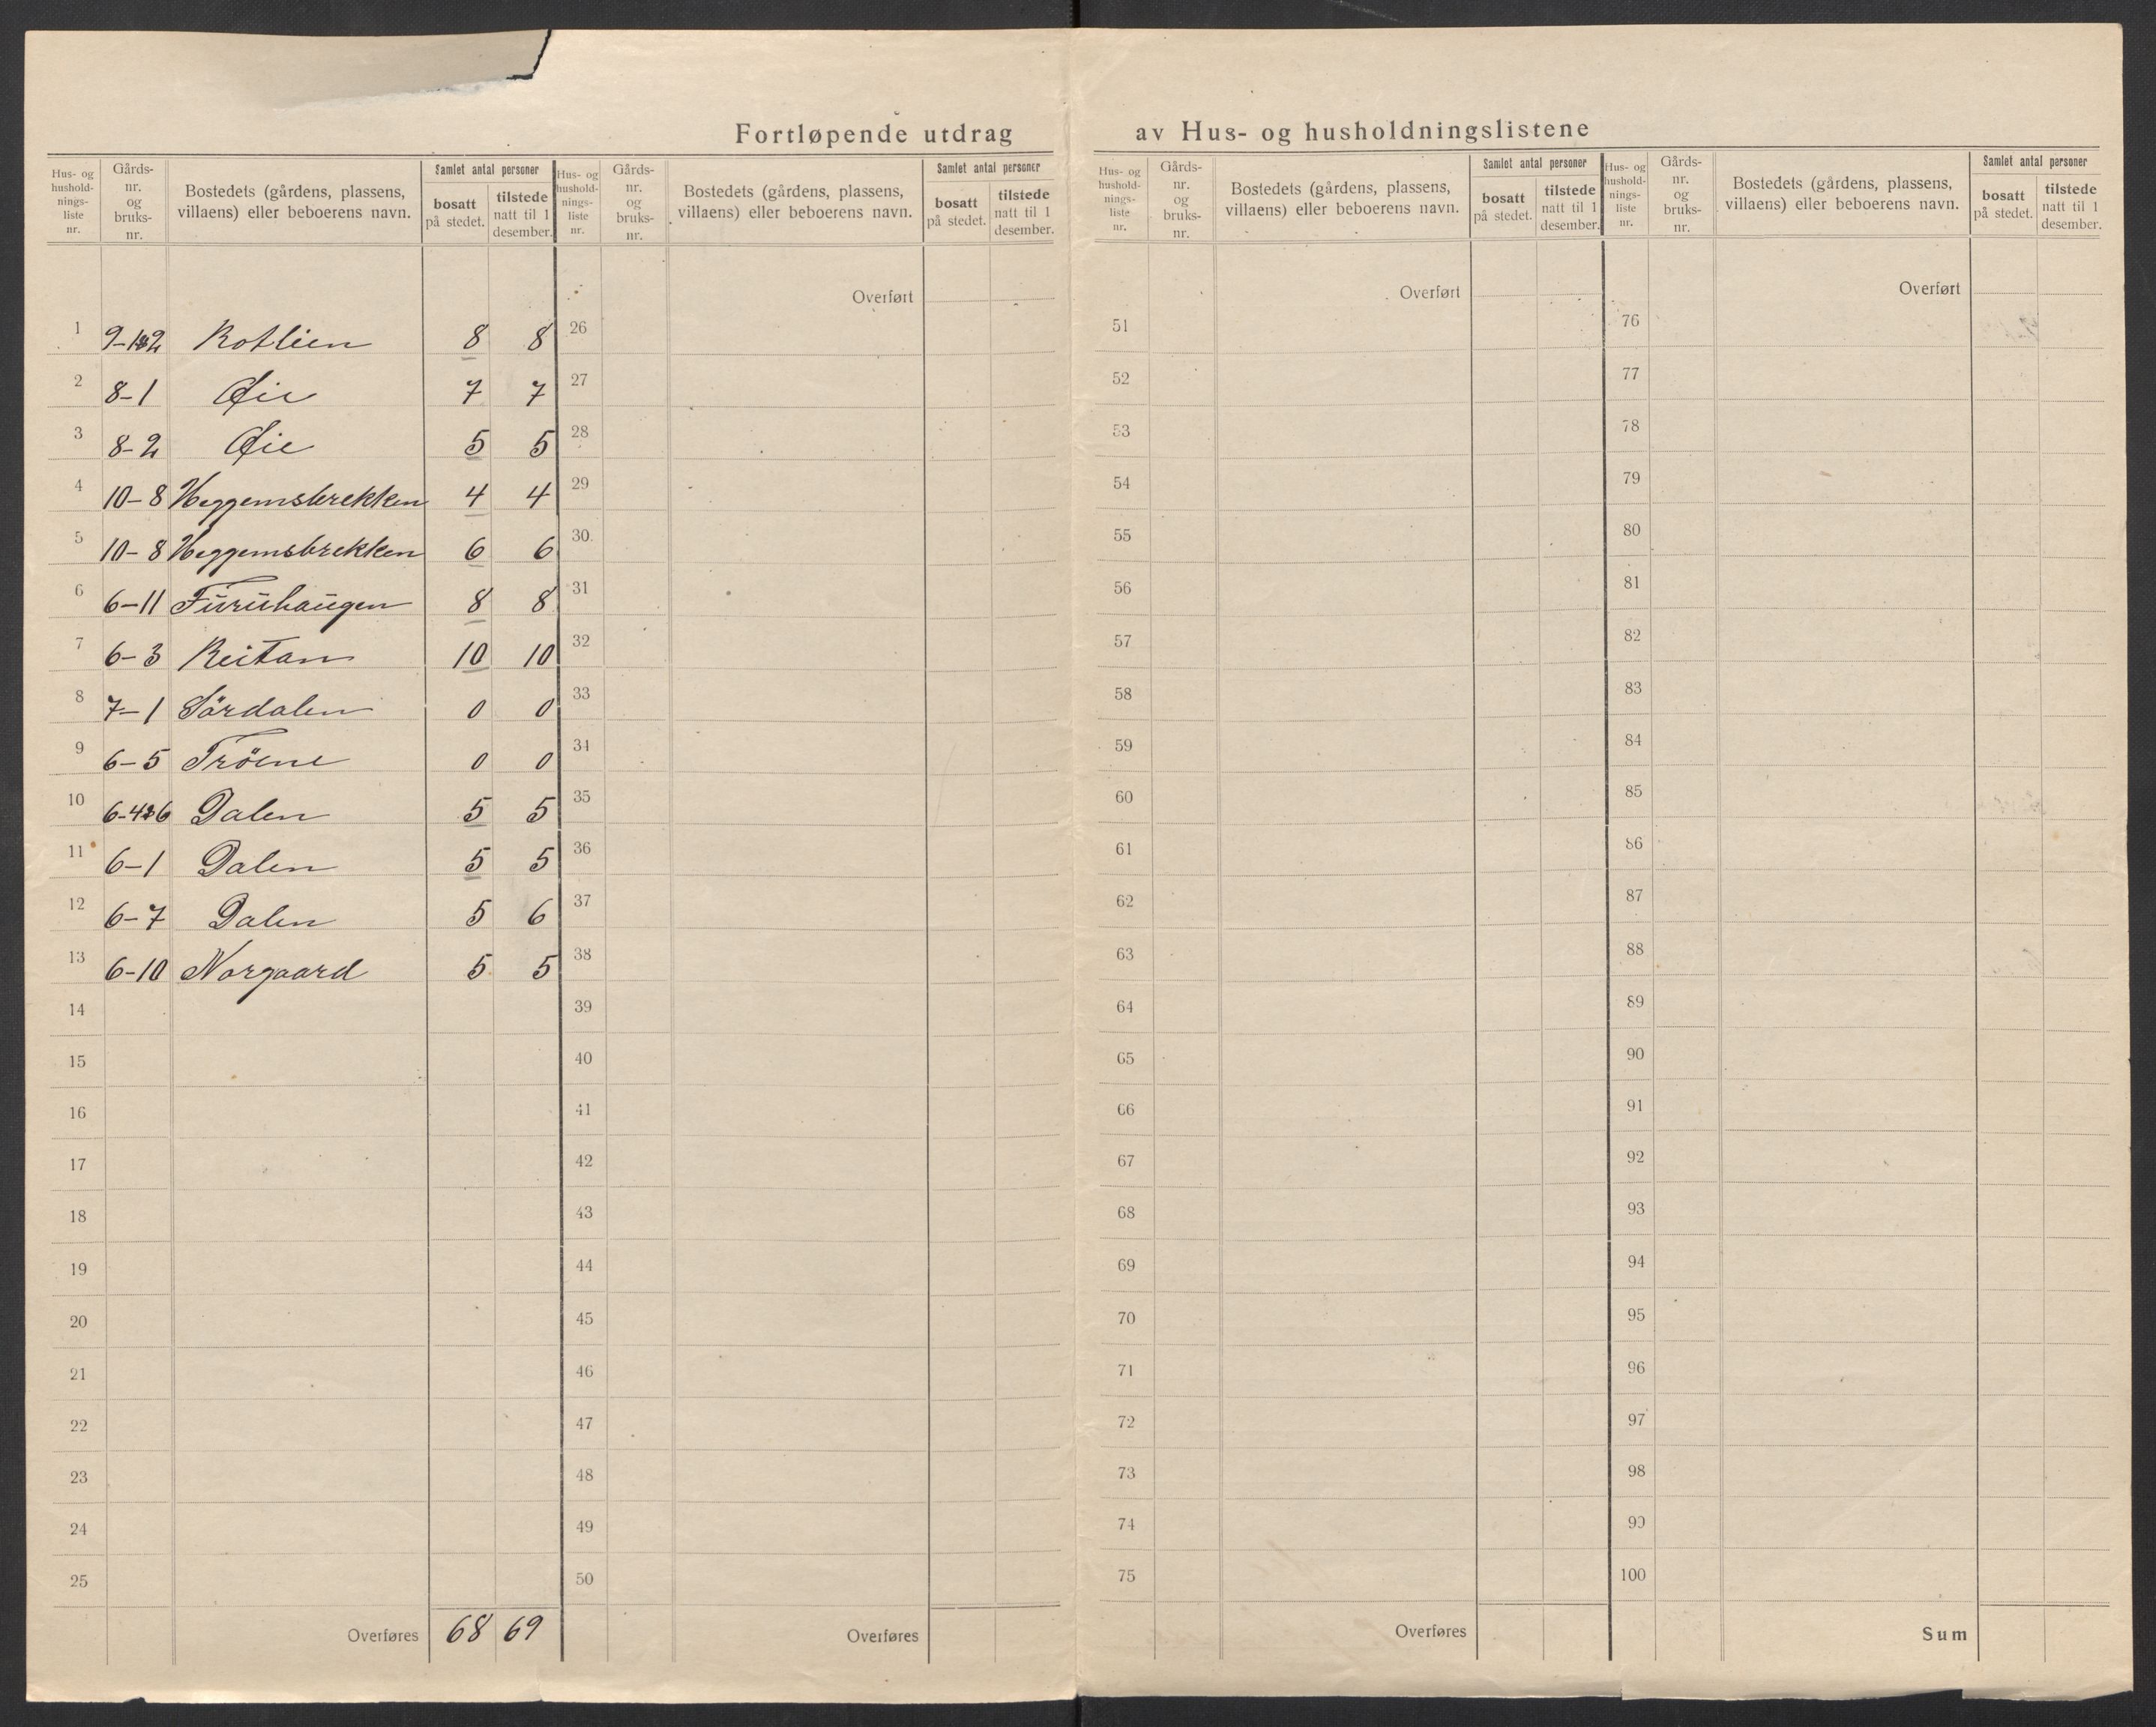 Fortløpende utdrag av Hus- og husholdningslistene
Hus- og husholdnings- liste nr. | Gårds- nr. og bruks- nr. | Bostedets (gårdens, plassens, villaens) eller beboerens navn. | Samlet antal personer | bosatt på stedet. | tilstede natt til 1 desember.
Hus- og husholdnings- liste nr. | Gårds- nr. og bruks- nr. | Bostedets (gårdens, plassens, villaens) eller beboerens navn. | Samlet antal personer | bosatt på stedet. | tilstede natt til 1 desember.
Hus- og husholdnings- liste nr. | Gårds- nr. og bruks- nr. | Bostedets (gårdens, plassens, villaens) eller beboerens navn. | Samlet antal personer | bosatt på stedet. | tilstede natt til 1 desember.
Hus- og husholdnings- liste nr. | Gårds- nr. og bruks- nr. | Bostedets (gårdens, plassens, villaens) eller beboerens navn. | Samlet antal personer | bosatt på stedet. | tilstede natt til 1 desember.
Overført Overført Overført
1 9-1&2 Rotlien 8 8 26 51 76
2 8-1 Øie 7 7 27 52 77
3 8-2 Øie 5 5 28 53 78
4 10-8 Heggemsbrekken 4 4 29 54 79
5 10-8 Heggemsbrekken 6 6 30. 55 80
6 6-11 Furuhaugen 8 8 31 56 81
7 6-3 Reitan 10 10 32 57 82
8 7-1 Sördalen 0 0 33 58 83
9 6-5 Tröene 0 0 34 59 84
10 6-4&6 Dalen 5 5 35 60 85
11 6-1 Dalen 5 5 36 61 86
12 6-7 Dalen 5 6 37 62 87
13 6-10 Norgaard 5 5 38 63 88
14 39 64 89
15 40 65 90
16 41 66 91
17 42 67 92
18 43 68 93
19 44 69 94
20 45 70 95
21 46 71 96
22 47 72 97
23 48 73 98
24 49 74 99
25 50 75 100
Overføres 68 69 Overføres Overføres Sum